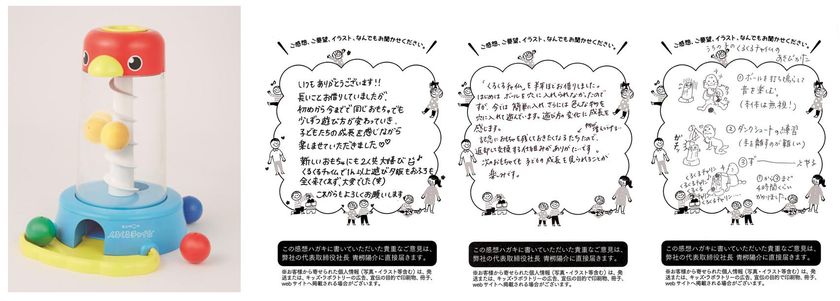 くもんの
くるくるチャイム
ご感想、ご要望、イラスト、なんでもお聞かせください。
いつもありがとうございます!!
長いことお借りしていましたが、
初めから今まで同じおもちゃでも
少しずつ遊び方が変わっていき、
子どもたちの成長を感じながら
楽しませていただきました♡
新しいおもちゃにも2人共大喜び
くるくるチャイムで1人以上遊び
全く来なくて、大変でした(笑)
これからもよろしくお願いします
この感想ハガキに書いていただいた貴重なご意見は、
弊社の代表取締役社長 青栁陽介に直接届きます。
※お客様から寄せられた個人情報(写真・イラスト等含む)は、発
送または、キッズ・ラボラトリーの広告、宣伝の目的で印刷物、冊子、
webサイトへ掲載される場合がございます。
ご感想、ご要望、イラスト、なんでもお聞かせください。
「くるくるチャイム」を半年ほどお借りしました。
はじめは ボールを穴に入れられなかったので
すが、今では 簡単に入れ さらには 色んなものを
穴に入れ遊んでいます。遊び方の変化に成長を
感じます。
記念におもちゃを残しておきたくなるたちなので、
返却して交換する仕組みがありがたいです。
次のおもちゃでも 子どもの成長を見られることが
楽しみです。
この感想ハガキに書いていただいた貴重なご意見は、
弊社の代表取締役社長 青栁陽介に直接届きます。
※お客様から寄せられた個人情報(写真・イラスト等含む)は、発
送または、キッズ・ラボラトリーの広告、宣伝の目的で印刷物、冊子、
webサイトへ掲載される場合がございます。
ご感想、ご要望、イラスト、なんでもお聞かせください。
うちの子のくるくるチャイムの
あそびかた
①ボールを打ち鳴らして
音を楽しむ
(本体は無視!)
②ダンクシュートの練習
(手を離すのが難しい)
③ず
くるくるチャイム
①から③まで
4時間くらい
かかりました。
この感想ハガキに書いていただいた貴重なご意見は、
弊社の代表取締役社長 青栁陽介に直接届きます。
※お客様から寄せられた個人情報(写真・イラスト等含む)は、発
送または、キッズ・ラボラトリーの広告、宣伝の目的で印刷物、冊子、
webサイトへ掲載される場合がございます。